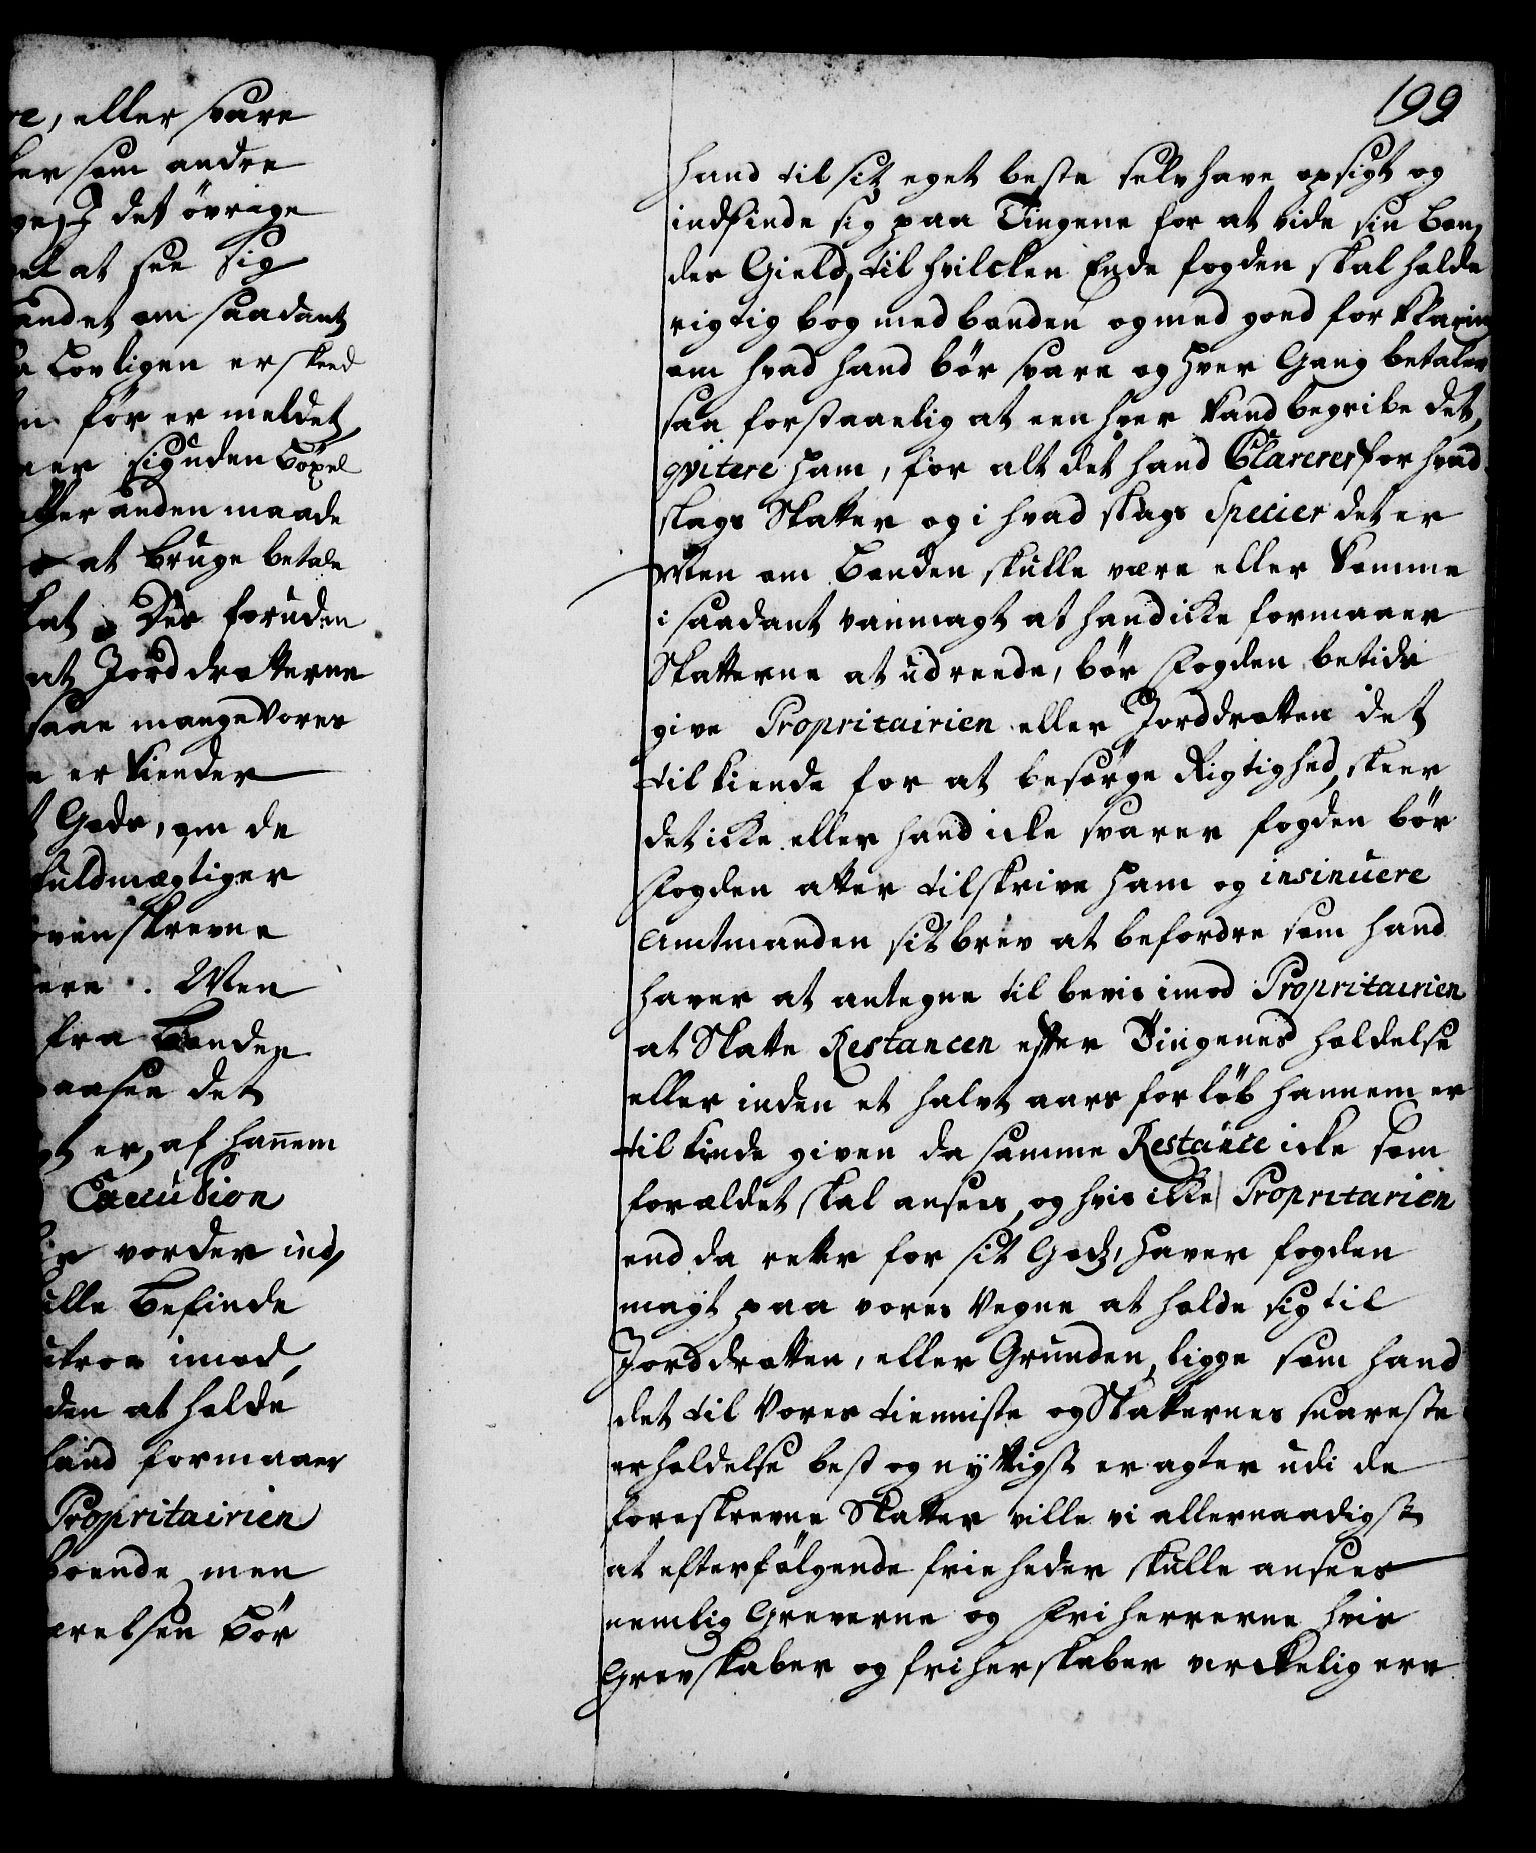 re, eller svare
ler som andre
ges J det övrige
vel at see sig
andet om saadant
a Lovligen er skeed
n för er meldet,
ner sig uden Böxel
eller anden maade
at bruge betale
Des foruden
at Jorddrotterne
saae mange Vores
er kiender
t Gods, om de
fuldmægtiger
ovenskrevne
ere. Men
fra Bonden
paasee det
gt er, af hannem
Execution
vorder ind,
ille befinde
imod,
den at holde
hand formaaer
Propritairien
boende, men
relsen bör
199
hand til sit eget beste selv have opsigt og
indfinde sig paa Tingene for at vide sin Bon,
des Gield, til hvilcken Ende fogden skal holde
rigtig bog med bonden og med goed forklaring
om hvad hand bör svare og hver Gang betaler
saa forstaaelig at een hver kand begribe det,
qvitere ham, for alt det hand Clarerer for hvad
slags Skatter og i hvad slags Specier det er
Men om Bonden skulle være eller komme
i saadant vanmagt at hand icke formaaer
Skatterne at udreede, bör Fogden betids
give Propritairien eller Jorddrotten det
tilkiende for at besörge Rigtighed, skeer
det icke eller hand icke svarer fogden bör
Fogden atter tilskrive ham og insinuere
Amtmanden sit brev at befordre som hand
haver at antegne til bevis imod Propritairien
at Skatte Restancen efter Tingenes holdelse
eller inden et halvt aars forlöb hannem er
tilkiende given da samme Restance icke som
forældet skal ansees, og hvis icke Propritarien
end da retter for sit Gods, haver fogden
magt paa vores Vegne at holde sig til
Jorddrotten, eller Grunden, ligge som hand
det til Vores tienniste og Skatternes snareste
erholdelse best og nyttigst eragter udi de
foreskrevne Skatter ville vi allernaadigst
at efterfölgende frieheder skulle ansees
nemlig Greverne og Friherrerne hvis
Grevskaber og friherskaber virckelig ere